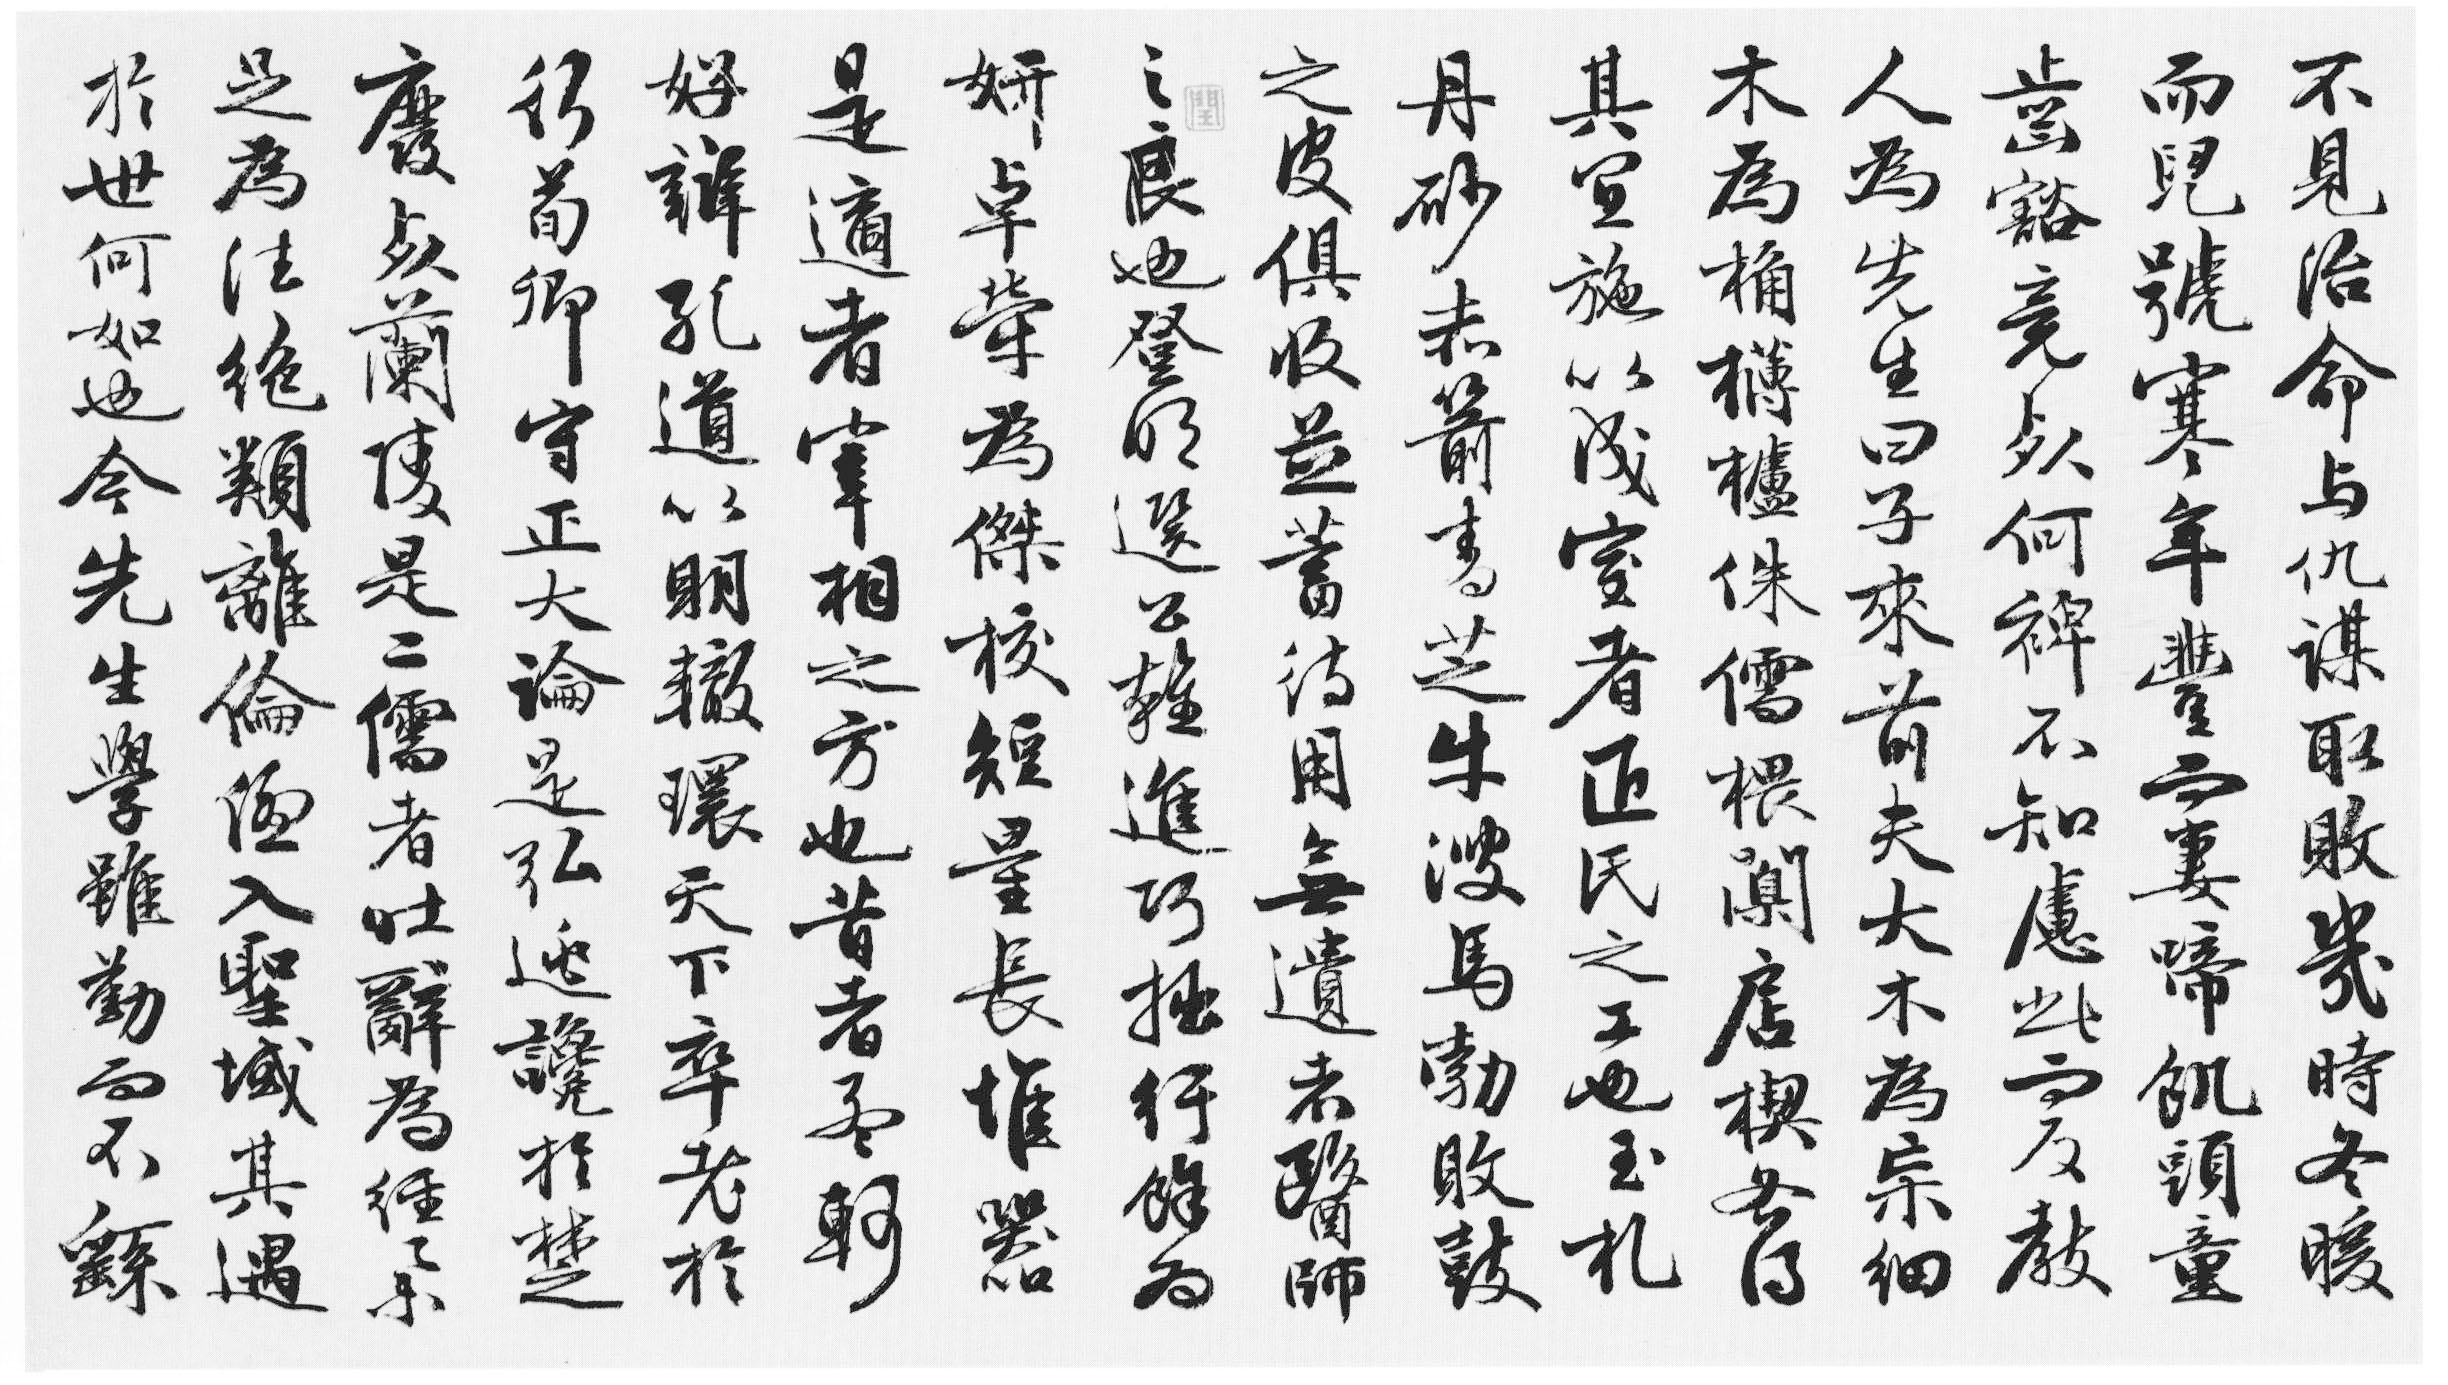 不見治命与仇謀取敗幾時冬暖
而兒號寒年豐而妻啼飢頭童
齒豁竟死何裨不知慮此而反教
人為先生曰子來前夫大木為杗細
木為桷欂櫨侏儒椳闑扂楔各得
其宜施以成室者匠氏之工也玉札
丹砂赤箭青芝牛溲馬勃敗鼓
之皮俱收並蓄待用無遺者醫師
之良也登明選公雜進巧拙紆餘為
妍卓犖為傑校短量長惟器
是適者宰相之方也昔者孟軻
好辯孔道以明轍環天下卒老於
行荀卿守正大論是弘逃讒於楚
廢死蘭陵是二儒者吐辭為經舉
足為法絕類離倫優入聖域其遇
於世何如也今先生學雖勤而不繇